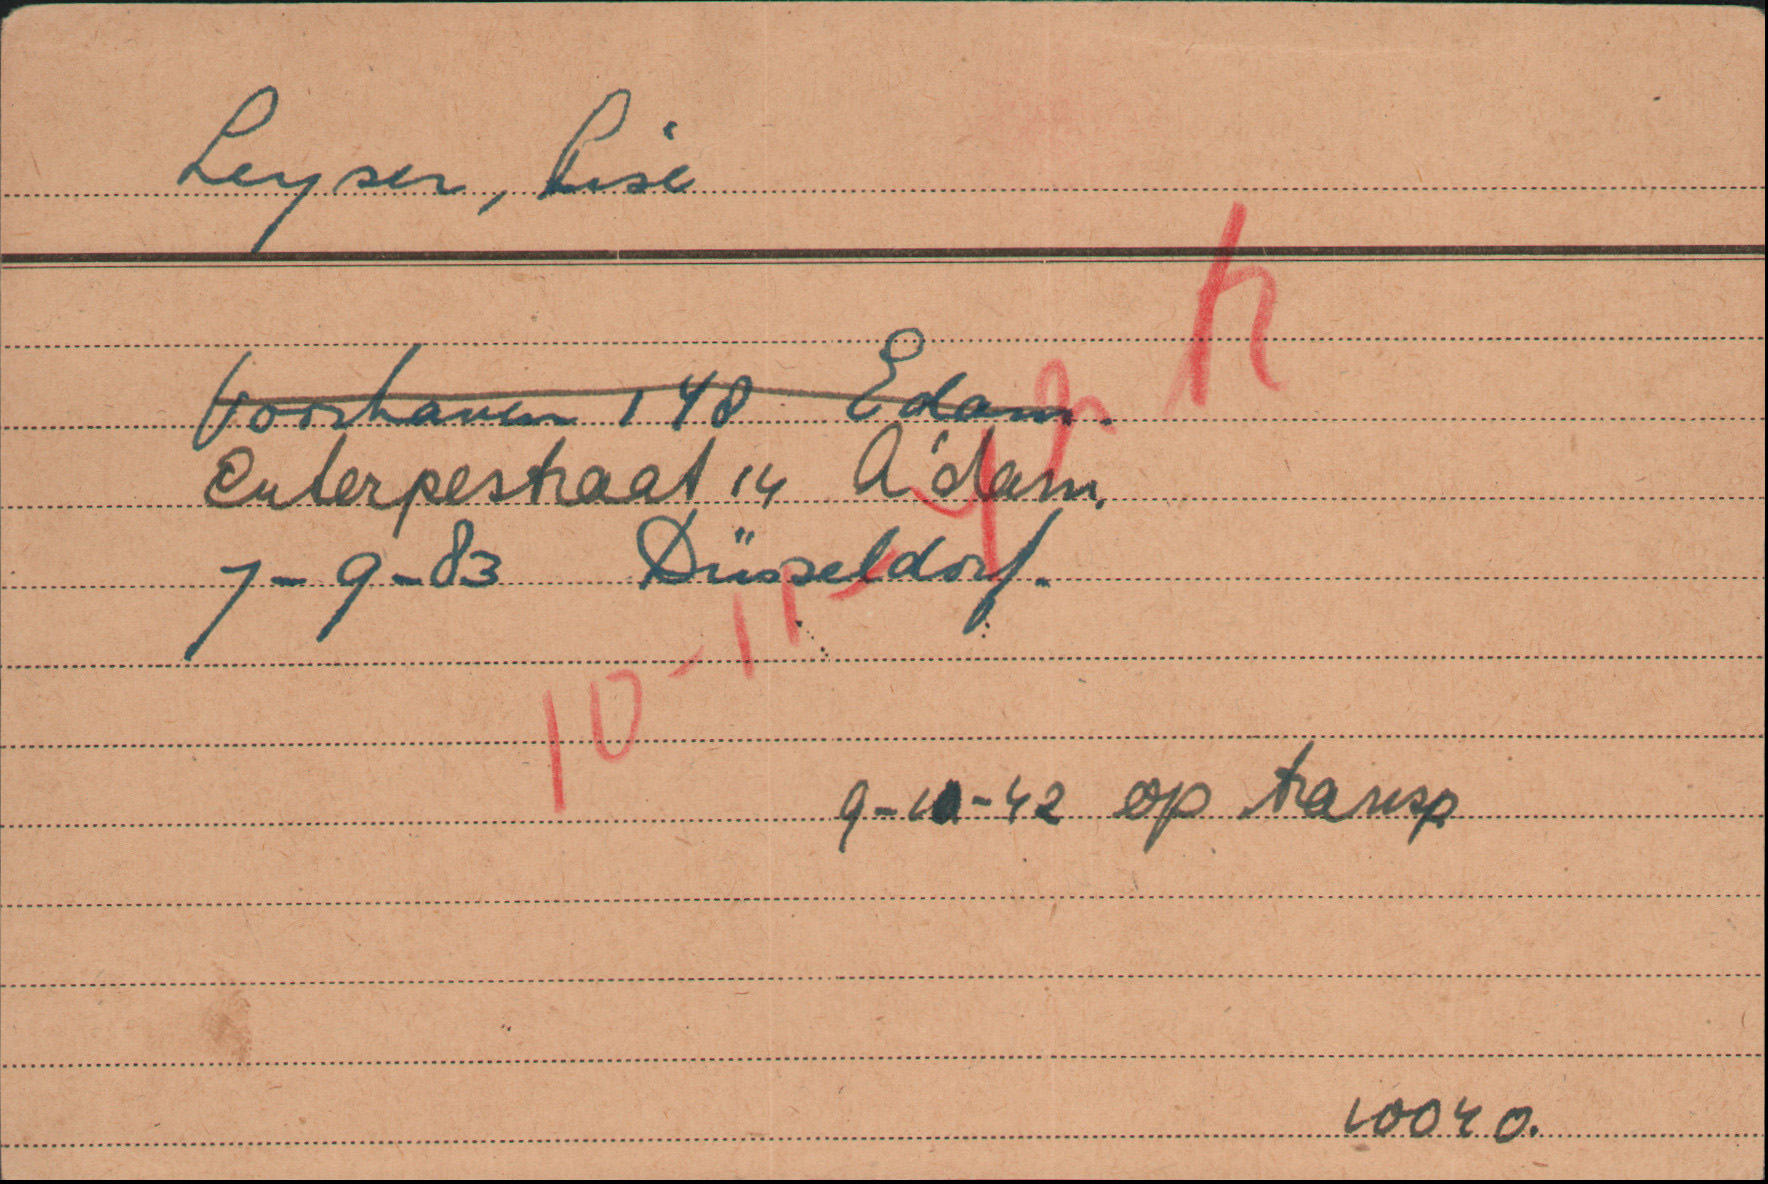 Leyser, Lise
Voorhaven 148 Edam.
Euterpestraat 14 A'dam.
7-9-83 Düsseldorf.
10-11-42 h
op transp
10040.